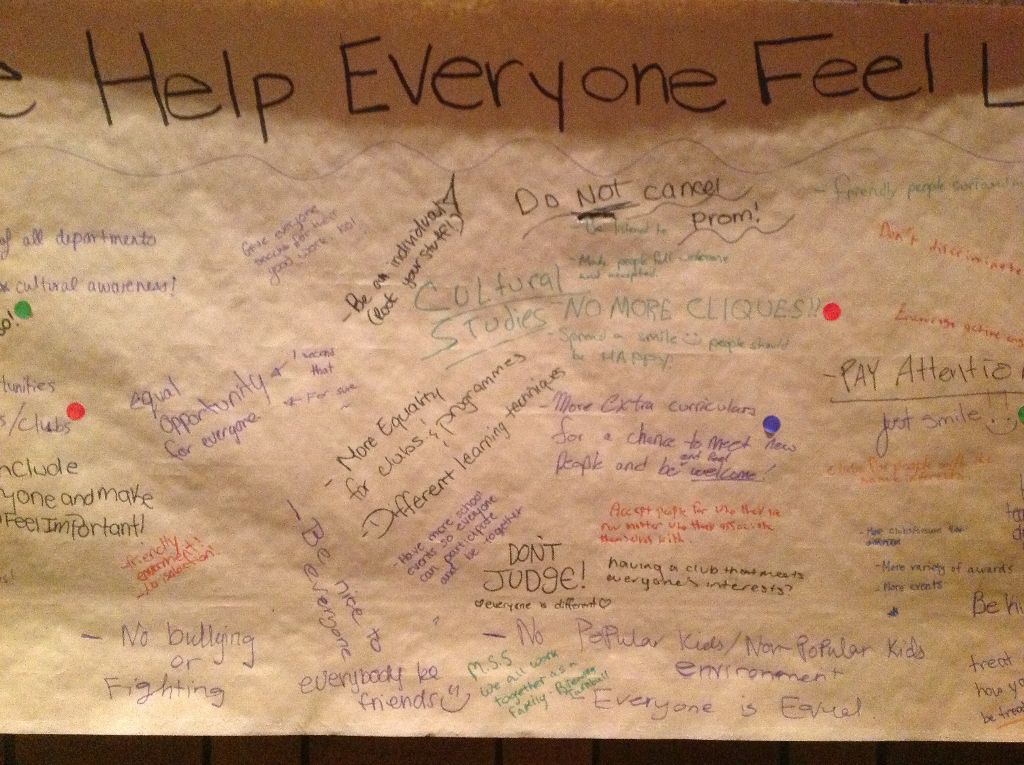 e Help Everyone Feel L
of all departments
cultural awareness!
Give everyone
good work too!
- Be an individual!
(Rock your stuff!)
Do NOT cancel
prom!
- Be listened to
- Make people feel welcome
and accepted.
Cultural
Studies
NO MORE CLIQUES!!
- Spread a smile people should
be HAPPY!
- friendly people
Don't discriminate
- PAY Attentio
just smile!!
s/clubs
equal
opportunity
for everyone
I second
that
For sure
- More Equality
for clubs & programmes
- Different learning techniques
- More Extra curriculars
for a chance to meet new
and feel
people and be welcome!
nclude
yone and make
Feel Important!
friendly
environment!
- Be nice to
everyone
- Have more school
events so everyone
can participate
and be together
Accept people for who they're
no matter who they associate
themselves with.
DON'T
JUDGE!
everyone is different
having a club that meets
everyone's interests?
- More variety of awards
- More events
Be ki
- No bullying
or
Fighting
everybody be
friends
M.S.S
we all work
together as a
family
- No Popular Kids/Non-Popular Kids
environment
- Everyone is Equal
treat
how yo
be trea